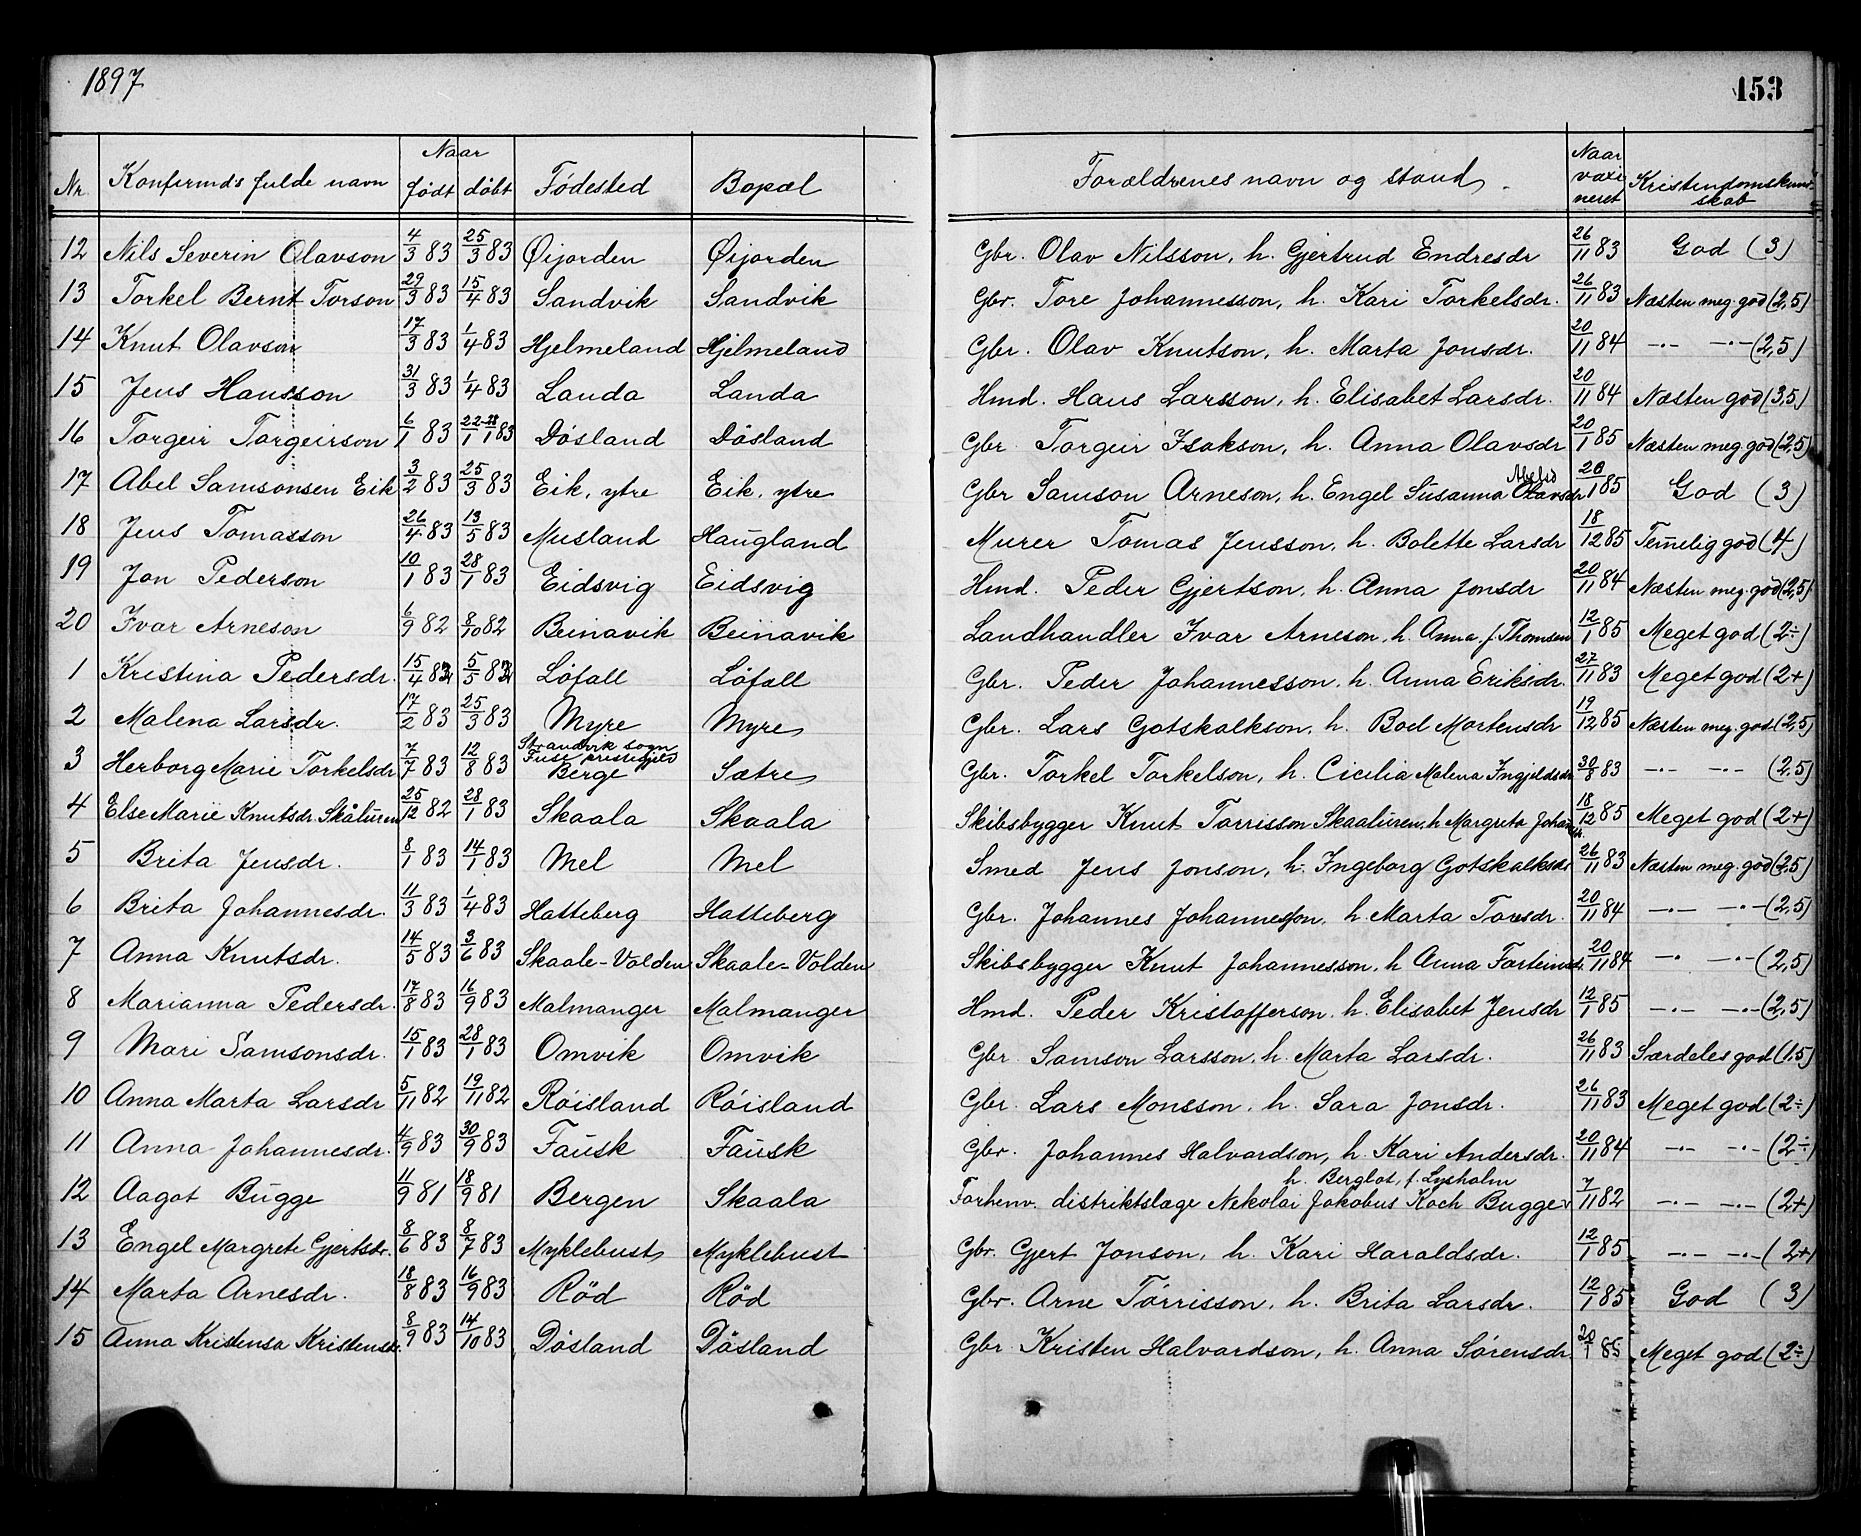 1897
153
Nr. Konfirmd's fulde navn Naar født døbt Fødested Bopæl Forældrenes navn og stand. Naar vaxineret Kristendomskundskab
12 Nils Severin Olavson 4/3 83 25/3 83 Øijorden Øijorden Gbr. Olav Nilsson, h. Gjertrud Endresdr 26/11 83 God (3)
13 Torkel Bernt Torson 29/3 83 15/4 83 Sandvik Sandvik Gbr. Tore Johannesson, h. Kari Torkelsdr. 26/11 83 Næsten meg. god (2,5)
14 Knut Olavson 17/3 83 1/4 83 Hjelmeland Hjelmeland Gbr. Olav Knutson, h. Marta Jonsdr. 20/11 84 —·— —·— (2,5)
15 Jens Hansson 31/3 83 1/4 83 Landa Landa Hmd. Hans Larsson, h. Elisabet Larsdr. 20/11 84 Næsten god (3,5)
16 Torgeir Torgeirson 6/1 83 22/1-28/1 83 Døsland Døsland Gbr. Torgeir Isakson, h. Anna Olavsdr 20/1 85 Næsten meg. god (2,5)
17 Abel Samsonsen Eik 3/2 83 25/3 83 Eik, ytre Eik, ytre Gbr Samson Arneson, h. Engel Susanna Olavsdr 20/1 85 God (3)
18 Jens Tomasson 26/4 83 13/5 83 Musland Haugland Murer Tomas Jensson, h. Bolette Larsdr 18/12 85 Temelig god (4)
19 Jon Pederson 10/1 83 28/1 83 Eidsvig Eidsvig Hmd. Peder Gjertson, h. Anna Jonsdr 20/11 84 Næsten meg. god (2,5)
20 Ivar Arneson 6/9 82 8/10 82 Beinavik Beinavik Landhandler Ivar Arneson, h. Anna f. Thomsen 12/1 85 Meget god (2÷)
1 Kristina Pedersdr. 15/4 83 5/5 83 Løfall Løfall Gbr. Peder Johannesson, h. Anna Eriksdr. 27/11 83 Meget god (2+)
2 Malena Larsdr. 17/2 83 25/3 83 Myre Myre Gbr. Lars Gotskalkson, h. Boel Mortensdr 19/12 85 Næsten meg. god (2,5)
3 Herborg Marie Torkelsdr 7/7 83 12/8 83 Strandvik sogn Fuse prestegjeld Berge Sætre Gbr. Torkel Torkelson, h. Cicilia Malena Ingjeldsdr 30/8 83 —·— —·— (2,5)
4 Else Marie Knutsdr. Skåluren 25/12 82 28/1 83 Skaala Skaala Skibsbygger Knut Torrisson Skaaluren, h Margreta Johannesdr. 18/12 85 Meget god (2+)
5 Brita Jensdr. 8/1 83 14/1 83 Mel Mel Smed Jens Jonson, h. Ingeborg Gotskalksdr 26/11 83 Næsten meg. god (2,5)
6 Brita Johannesdr. 11/3 83 1/4 83 Hatteberg Hatteberg Gbr. Johannes Johannesson, h. Marta Toresdr. 20/11 84 —·— —·— (2,5)
7 Anna Knutsdr. 14/5 83 3/6 83 Skaale-Volden Skaale-Volden Skibsbygger Knut Johannesson, h Anna Forteinsdr. 20/11 84 —·— —·— (2,5)
8 Marianna Pedersdr. 17/8 83 16/9 83 Malmanger Malmanger Hmd. Peder Kristofferson, h. Elisabet Jensdr 12/1 85 —·— —·— (2,5)
9 Mari Samsonsdr. 15/1 83 28/1 83 Omvik Omvik Gbr Samson Larsson, h. Marta Larsdr. 26/11 83 Særdeles god (1,5)
10 Anna Marta Larsdr 5/11 82 19/11 82 Røisland Røisland Gbr. Lars Monsson, h. Sara Jonsdr. 26/11 83 Meget god (2÷)
11 Anna Johannesdr. 4/9 83 30/9 83 Fausk Fausk Gbr. Johannes Halvardson, h. Kari Andersdr. 20/11 84 —·— —·— (2÷)
12 Aagot Bugge 11/9 81 18/9 81 Bergen Skaala Forhenv. distriktslæge Nikolai Jakobus Koch Bugge h. Bergliot, f. Lysholm 7/11 82 —·— —·— (2+)
13 Engel Margrete Gjertsdr. 8/6 83 8/7 83 Myklebust Myklebust Gbr. Gjert Jonson, h. Kari Haraldsdr. 12/1 85 —·— —·— (2+)
14 Marta Arnesdr. 18/8 83 16/9 83 Rød Rød Gbr. Arne Torrisson, h. Brita Larsdr. 12/1 85 God (3)
15 Anna Kristensa Kristensdr. 8/9 83 14/10 83 Døsland Døsland Gbr Kristen Halvardson, h. Anna Sørensdr. 20/1 85 Meget god (2÷)